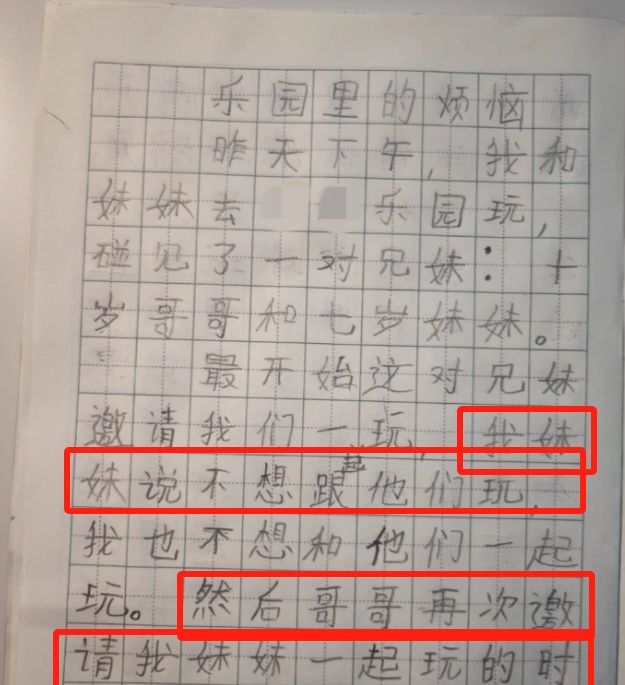 乐园里的烦恼
昨天下午,我和
妹妹去 乐园玩,
碰见了一对兄妹:十
岁哥哥和七岁妹妹。
最开始这对兄妹
邀请我们一起玩,我妹
妹说不想跟他们玩,
我也不想和他们一起
玩。然后哥哥再次邀
请我妹妹一起玩的时